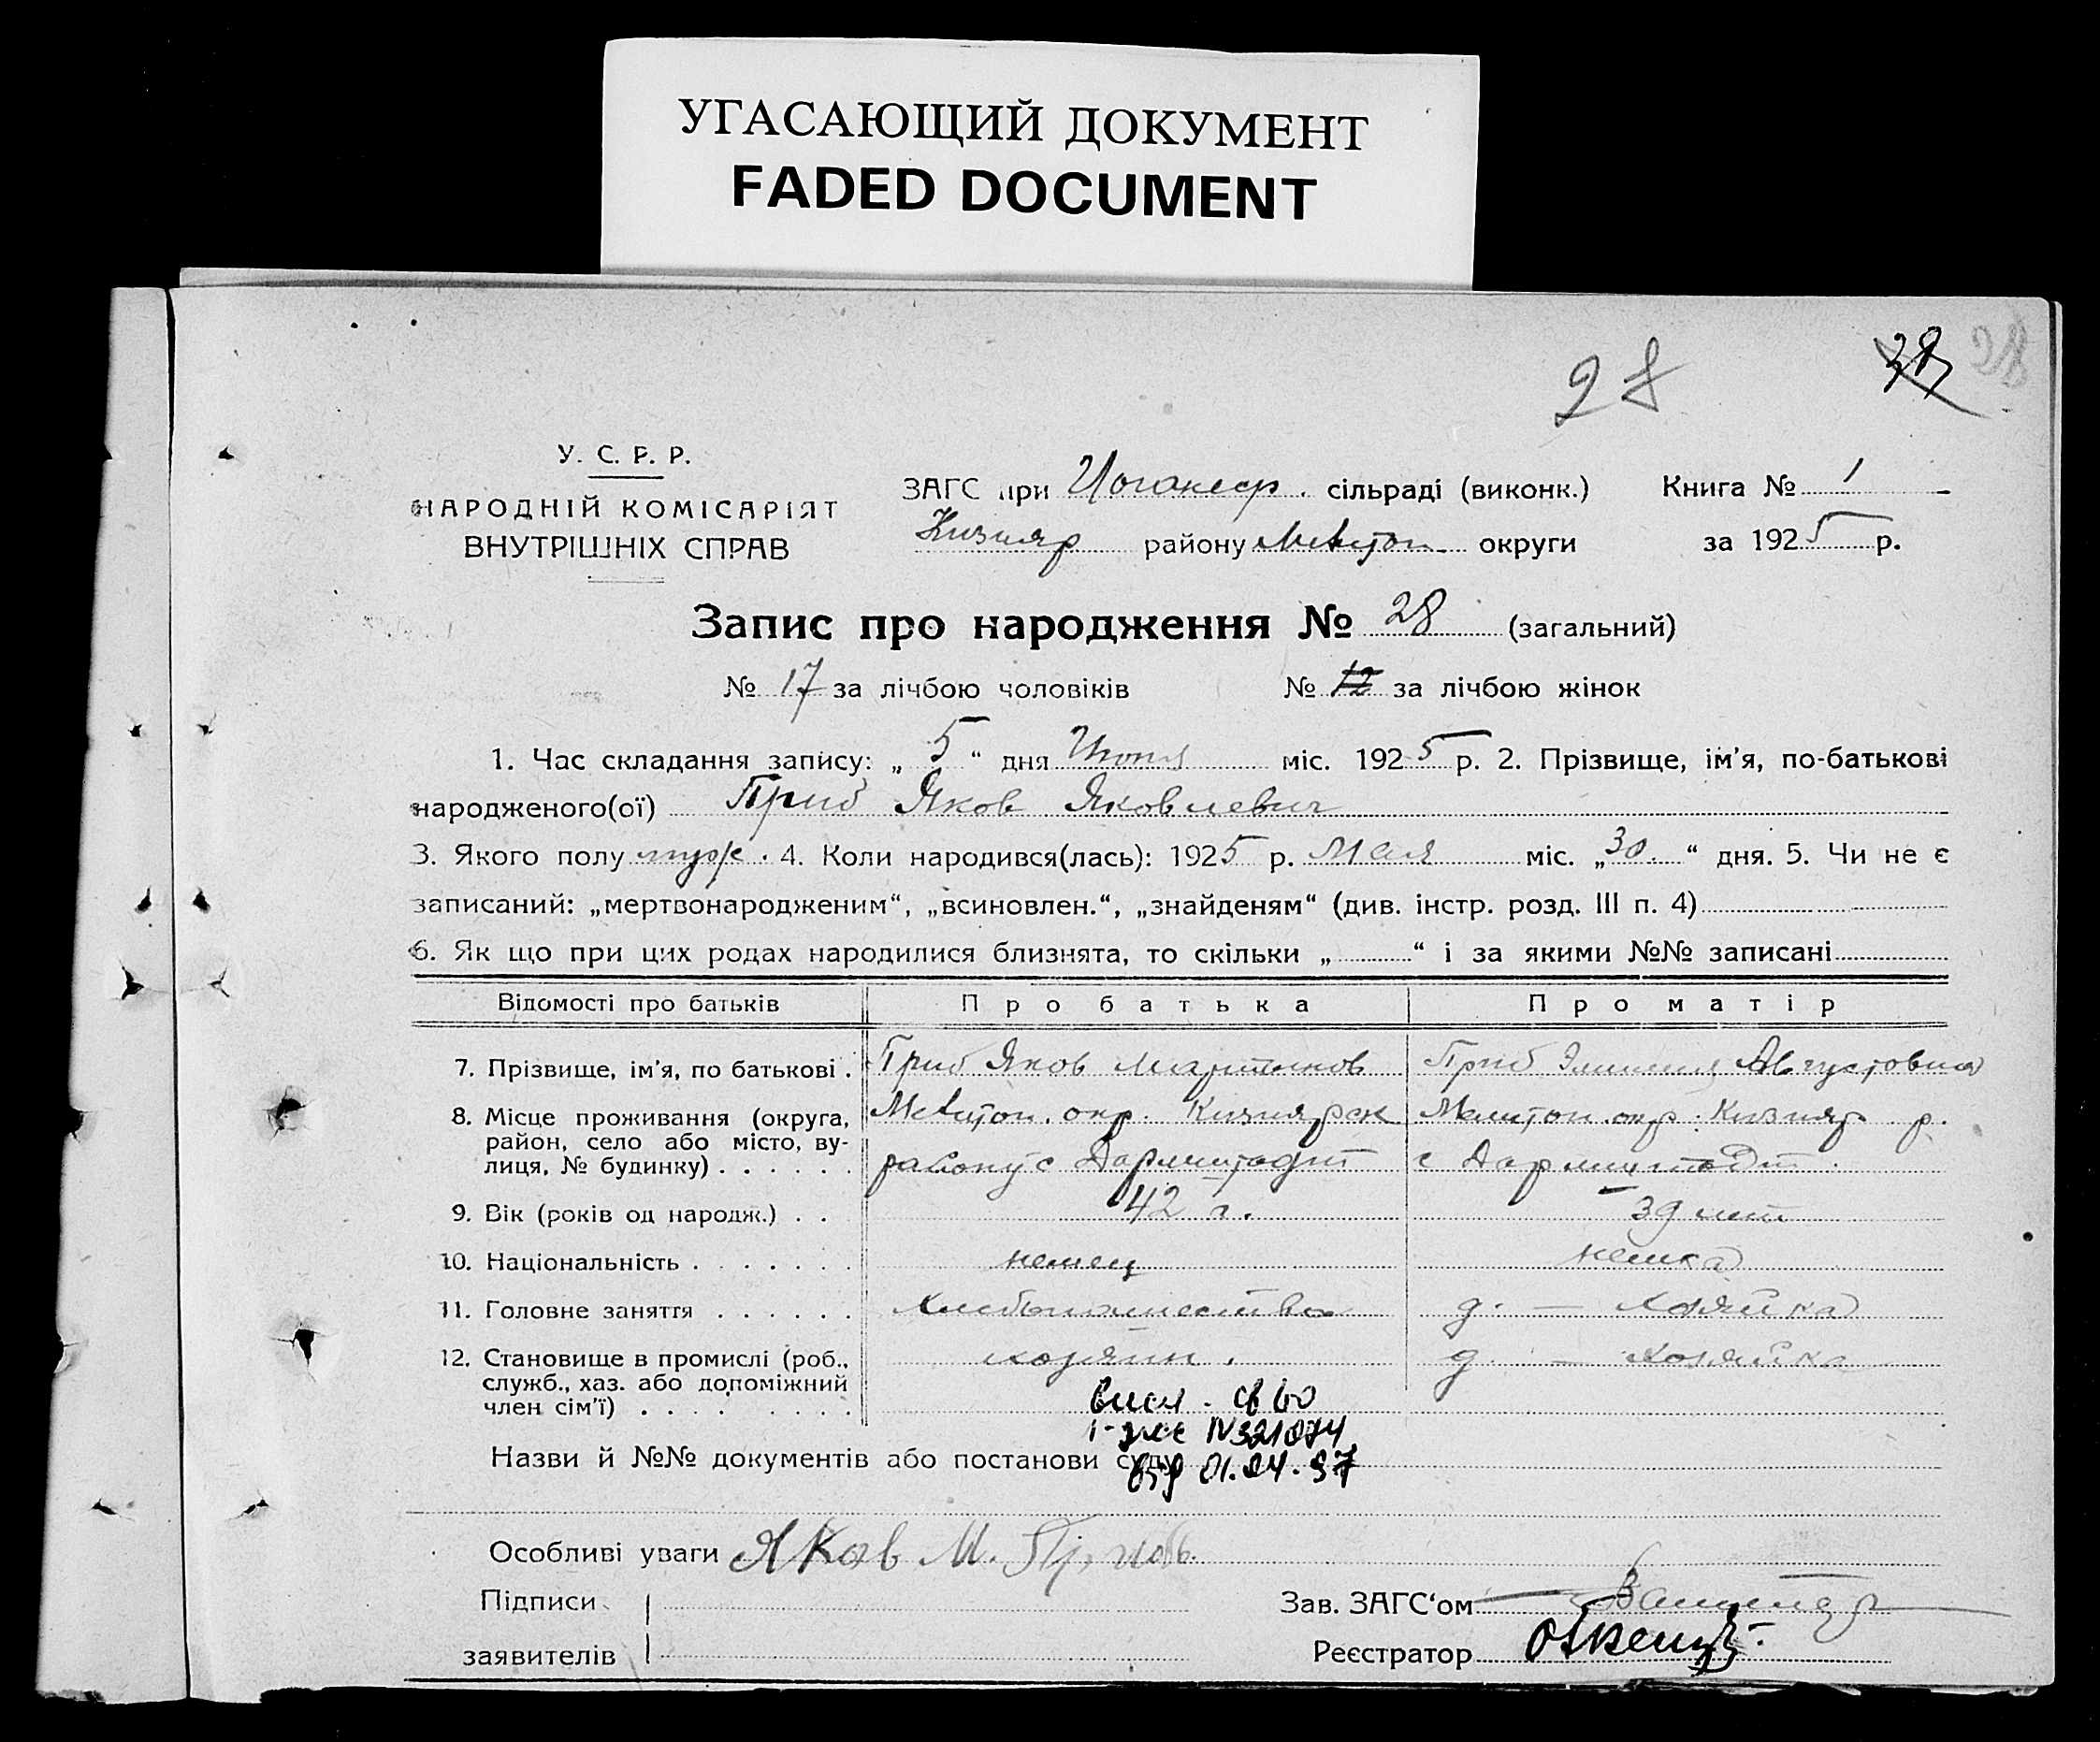 УГАСАЮЩИЙ ДОКУМЕНТ
FADED DOCUMENT
28
28
У. С. Р. Р.
НАРОДНІЙ КОМІСАРІЯТ
ВНУТРІШНІХ СПРАВ
ЗАГС при сільраді (виконк.) Книга № 1
Кизияр району Мелитоп. округи за 1925 р.
Запис про народження № 28 (загальний)
№ 17 за лічбою чоловіків № 12 за лічбою жінок
1. Час складання запису: „ 5 “ дня Июня міс. 1925 р. 2. Прізвище, ім’я, по-батькові
народженого(ої) Приб Яков Яковлевич
3. Якого полу муж. 4. Коли народився(лась): 1925 р. Мая міс. „ 30. “ дня. 5. Чи не є
записаний: „мертвонародженим“, „всиновлен.“, „знайденям“ (див. інстр. розд. III п. 4)
6. Як що при цих родах народилися близнята, то скільки „ “ і за якими №№ записані
Відомості про батьків Про батька Про матір
7. Прізвище, ім’я, по батькові . Приб Яков Мартинов Приб Августовна
8. Місце проживання (округа, Мелитоп. окр. Кизиярск Мелитоп. окр. Кизияр р.
район, село або місто, ву- району с Дармштадт с Дармштадт
лиця, № будинку) . . . . . .
9. Вік (років од народж.) . . 42 г. 39 лет
10. Національність . . . . . . . немец немка
11. Головне заняття . . . . . . Хлебопашество д. — хозяйка
12. Становище в промислі (роб., хозяин. д — хозяйка
служб., хаз. або допоміжний
член сім’ї) . . . . . . . . .
IV 321074
Назви й №№ документів або постанови суду
від 01.04.97
Особливі уваги Яков М.
Підписи Зав. ЗАГС‘ом
заявителів Реєстратор